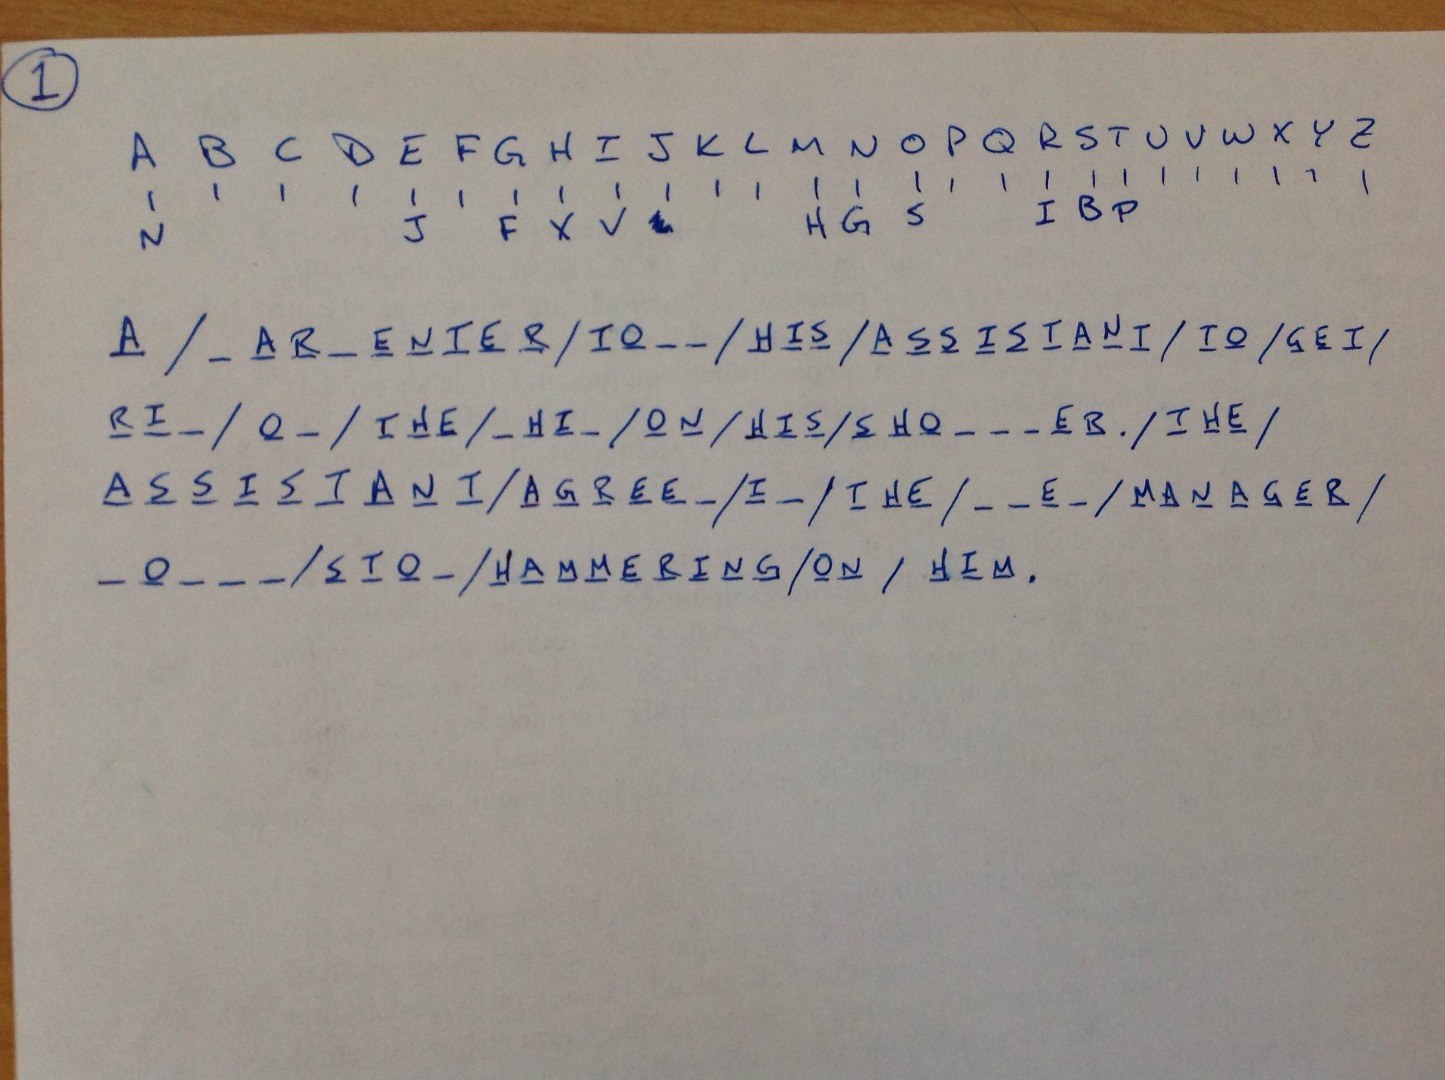 1
A B C D E F G H I J K L M N O P Q R S T U V W X Y Z
N J F X V H G S I B P
A / _ A R _ E N T E R / T O _ _ / H I S / A S S I S T A N T / T O / G E T /
R I _ / O _ / T H E / _ H I _ / O N / H I S / S H O _ _ _ E R . / T H E /
A S S I S T A N T / A G R E E _ / I _ / T H E / _ _ E _ / M A N A G E R /
_ O _ _ _ / S T O _ / H A M M E R I N G / O N / H I M .